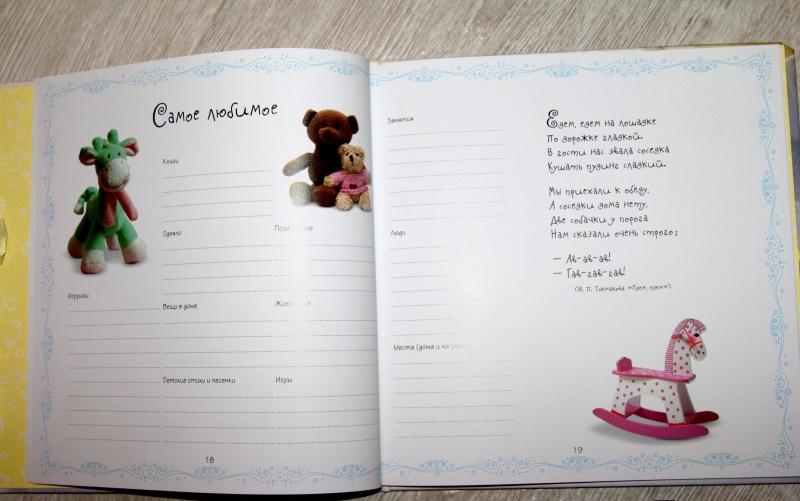 Самое любимое
Книги
Одеяло
Игрушки
Вещи в доме
Детские стихи и песенки
Игры
18
Занятия
Люди
Места (дома и на
Едем, едем на лошадке
По дорожке гладкой.
В гости нас звала соседка
Кушать пудинг сладкий.
Мы приехали к обеду,
А соседки дома нету,
Две собачки у порога
Нам сказали очень строго:
— Ав-ав-ав!
— Гав-гав-гав!
(И. П. Токмакова «Едем, едем»)
19